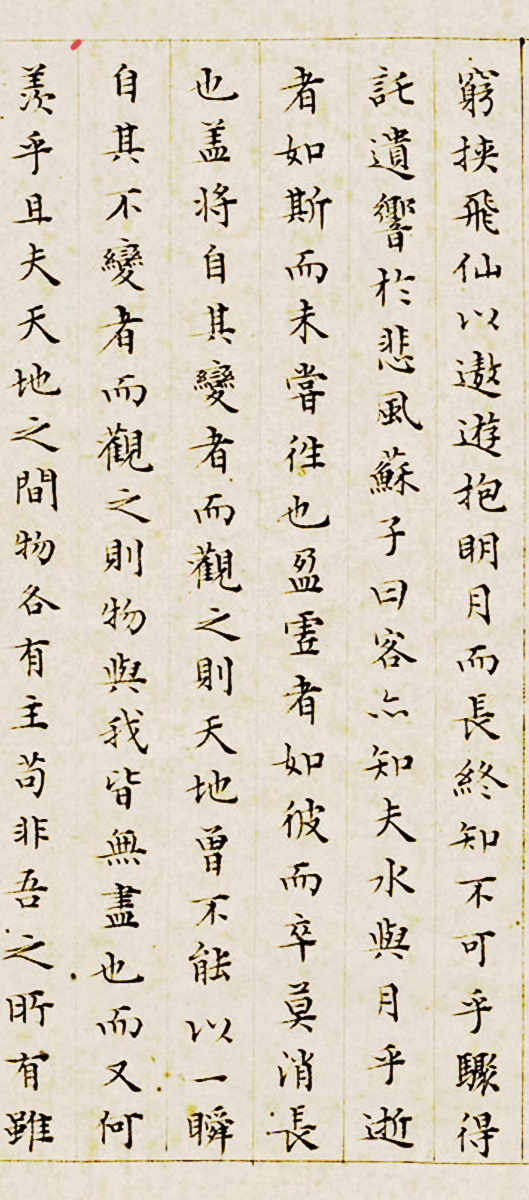 窮挾飛仙以遨遊抱明月而長終知不可乎驟得
託遺響於悲風蘇子曰客亦知夫水與月乎逝
者如斯而未甞徃也盈虛者如彼而卒莫消長
也盖將自其變者而觀之則天地曾不能以一瞬
自其不變者而觀之則物與我皆無盡也而又何
羨乎且夫天地之間物各有主苟非吾之所有雖